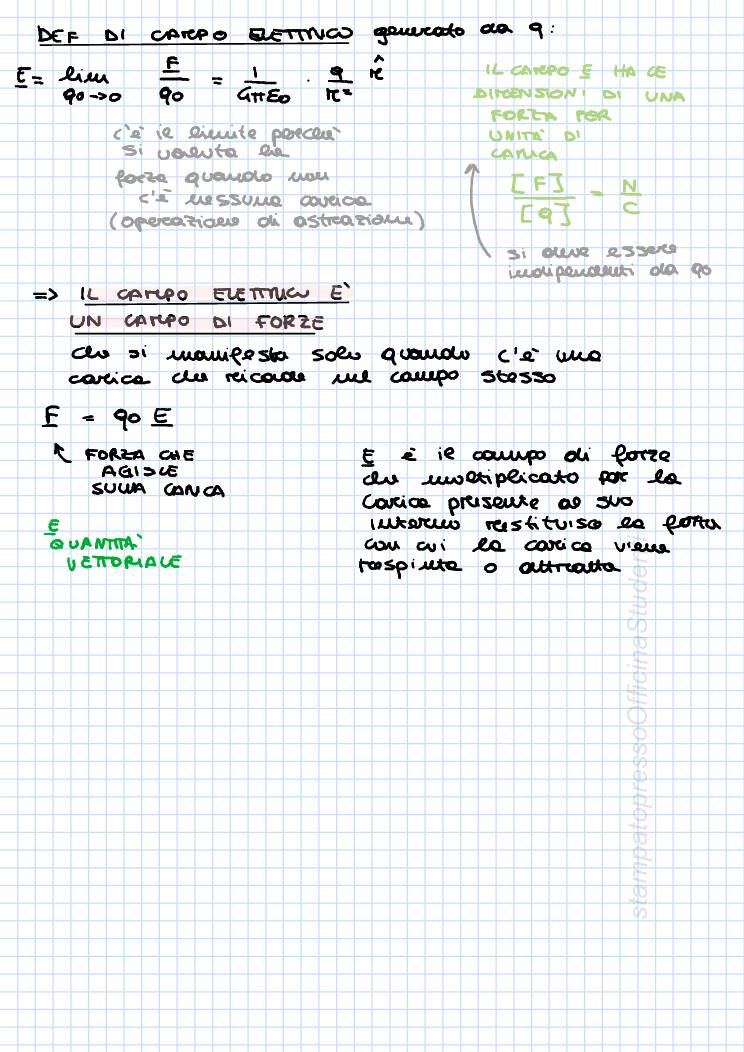 DEF DI CAMPO ELETTRICO generato da q:
E = lim q0→0 F/q0 = 1/4πε0 · q/r² r̂
c'è il limite perché
si valuta la
forza quando non
c'è nessuna carica
(operazione di astrazione)
IL CAMPO E HA LE
DIMENSIONI DI UNA
FORZA PER
UNITÀ DI
CARICA
[F]/[q] = N/C
si deve essere
indipendenti da q0
=> IL CAMPO ELETTRICO E'
UN CAMPO DI FORZE
che si manifesta solo quando c'è una
carica che ricade nel campo stesso
F = q0 E
FORZA CHE
AGISCE
SULLA CARICA
E
QUANTITA'
VETTORIALE
E è il campo di forze
che moltiplicato per la
carica presente al suo
interno restituisce la forza
con cui la carica viene
respinta o attratta
stampatopressoOfficinaStudenti